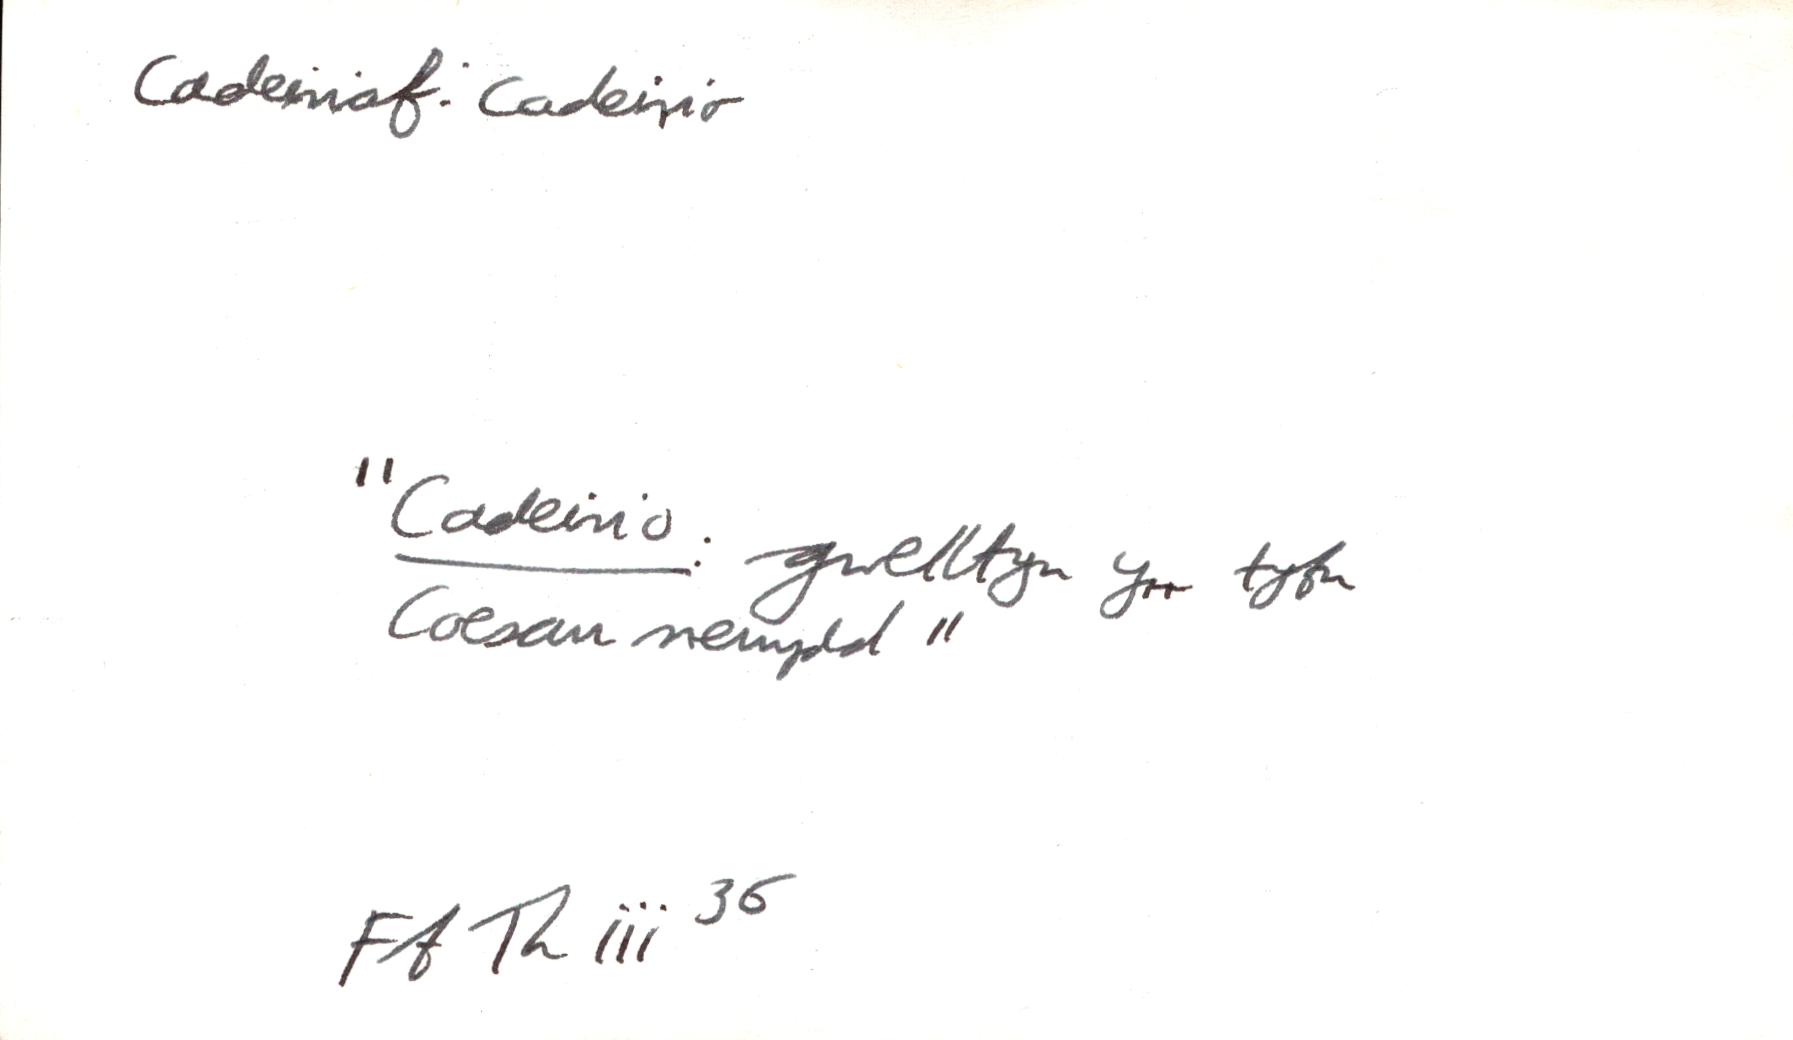 Cadeiriaf: Cadeirio
"Cadeirio: gwelltyn yn tyfu
Coesau newydd"
Ff Th iii 36